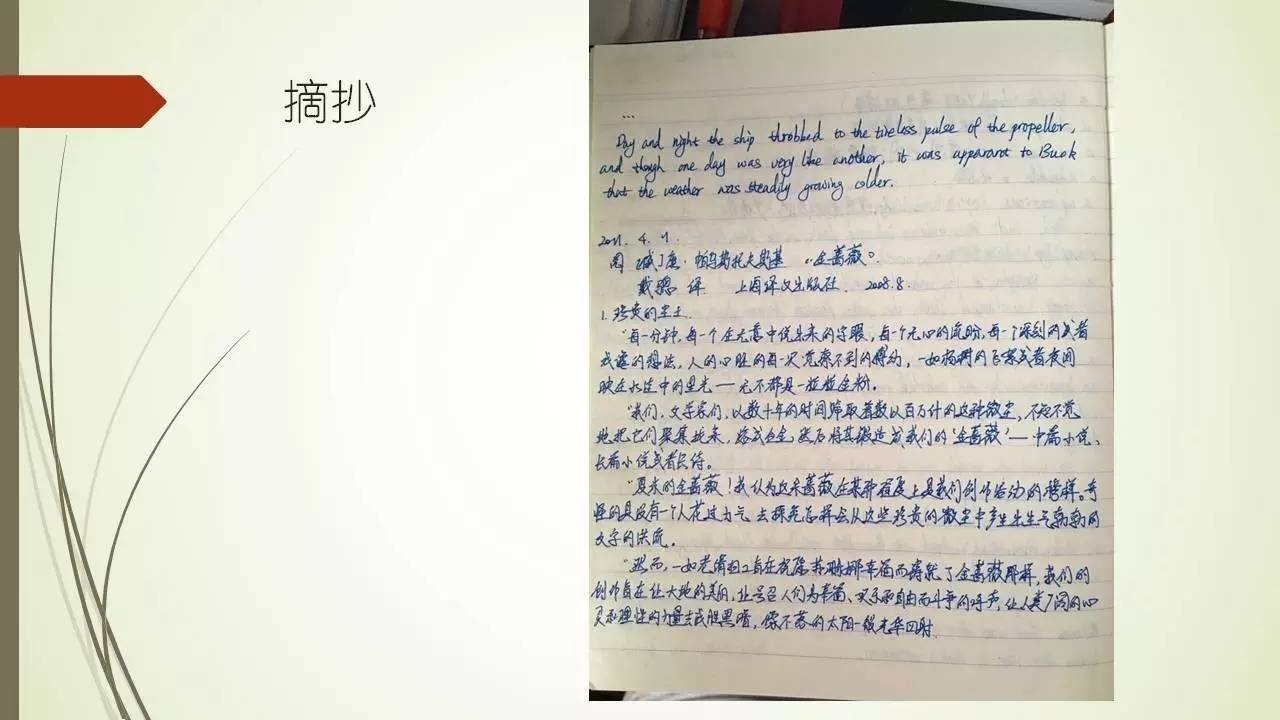 摘抄
...
Day and night the ship throbbed to the tireless pulse of the propeller,
and though one day was very like another, it was apparant to Buck
that the weather was steadily growing colder.
4.
康·帕乌斯托夫斯基 《金蔷薇》.
戴骢 译. 上海译文出版社. 2008.8.
1. 珍贵的尘土.
"每一分钟,每一个在无意中说出来的字眼,每一个无心的流盼,每一个深刻的或者
戏谑的想法,人的心脏的每一次觉察不到的搏动,一如杨树的飞絮或者夜间
映在水洼中的星光——无不都是一粒粒金粉.
"我们,文学家们,以数十年的时间筛取着数以百万计的这种微尘,不知不觉
地把它们聚集起来,熔成合金,然后将其锻造成我们的'金蔷薇'——中篇小说、
长篇小说或者长诗。
"夏米的金蔷薇!我认为这朵蔷薇在某种程度上是我们创作活动的榜样。奇
怪的是没有一个人花过力气去探究怎样会从这些珍贵的微尘中产生出生气勃勃的
文字的洪流。
"然而,一如老清扫工旨在祝愿苏珊娜幸福而铸就了金蔷薇那样,我们的
创作旨在让大地的美丽,让号召人们为幸福、欢乐和自由而斗争的呼声,让人类广阔的心
灵和理性的力量去战胜黑暗,像不落的太阳一般光华四射.